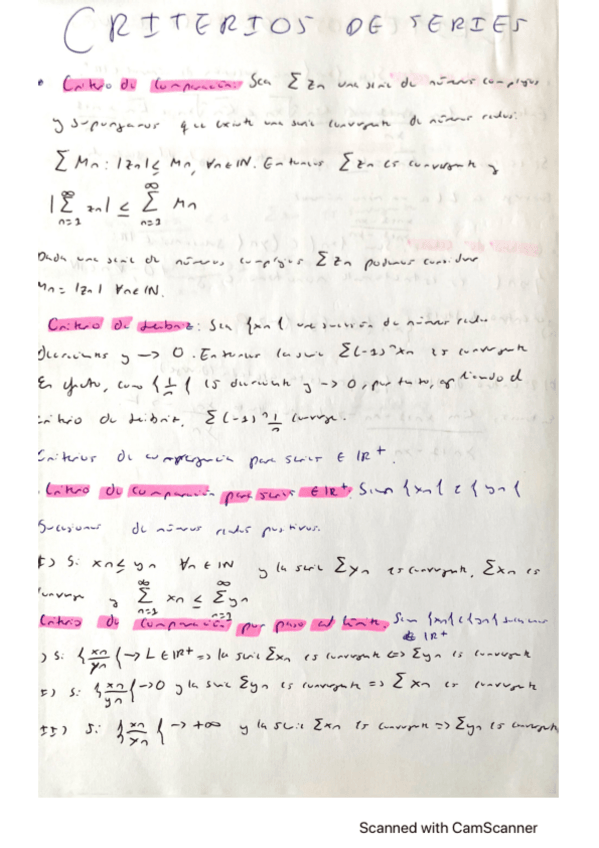 CRITERIOS DE SERIES
• Criterio de Comparación: Sea Σ Zn una serie de números complejos
y supongamos que existe una serie convergente de números reales:
Σ Mn : |Zn| ≤ Mn, ∀n∈IN. Entonces Σ Zn es convergente y
|Σ_{n=1}^{∞} zn| ≤ Σ_{n=1}^{∞} Mn
Dada una serie de números complejos Σ Zn podemos considerar
Mn = |Zn| ∀n∈IN.
Criterio de Leibniz: Sea {xn{ una sucesión de números reales
decreciente y → 0. Entonces la serie Σ(-1)^n xn es convergente
En efecto, como {1/n{ es decreciente y → 0, por tanto, aplicando el
criterio de Leibniz, Σ(-1)^n 1/n converge.
Criterios de convergencia para series ∈ IR+.
Criterio de comparación para series ∈ IR+. Sean {xn{ e {yn{
sucesiones de números reales positivos.
I) Si xn ≤ yn ∀n∈IN y la serie Σyn es convergente, Σxn es
converge y Σ_{n=1}^{∞} xn ≤ Σ_{n=1}^{∞} yn
Criterio de comparación por paso al límite. Sean {xn{ e {yn{ sucesiones
∈ IR+
) Si {xn/yn{ → L ∈ IR+ => la serie Σxn es convergente <=> Σyn es convergente
I) Si {xn/yn{ → 0 y la serie Σyn es convergente => Σxn es convergente
II) Si {xn/yn{ → +∞ y la serie Σxn es convergente => Σyn es convergente
Scanned with CamScanner